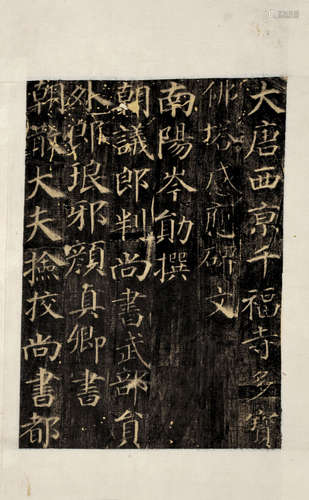 大唐西京千福寺多寶
佛塔感應碑文
南陽岑勛撰
朝議郎判尚書武部員
外郎琅邪顏真卿書
朝散大夫撿挍尚書都